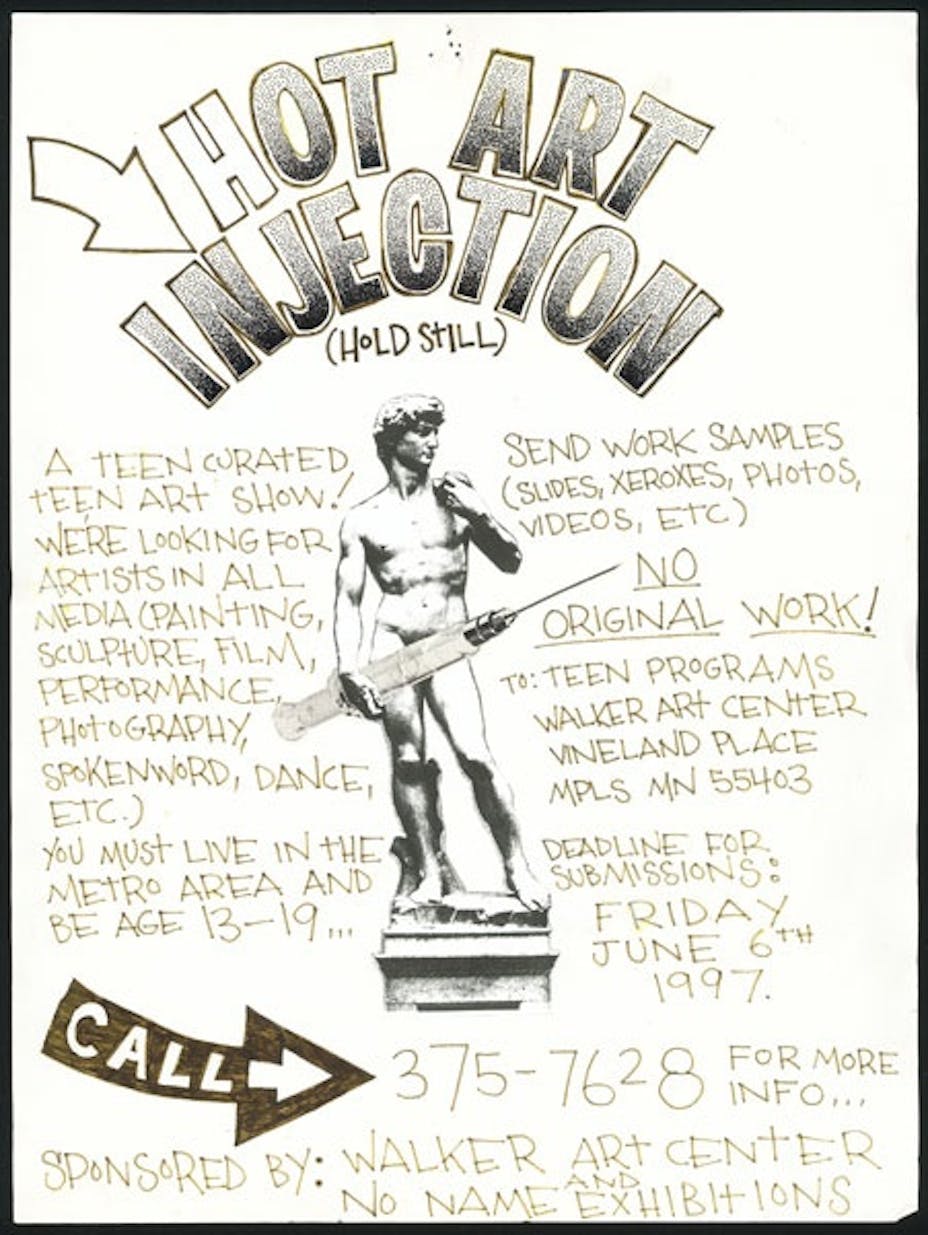 HOT ART
INJECTION
(HOLD STILL)
A TEEN CURATED,
TEEN ART SHOW!
WE'RE LOOKING FOR
ARTISTS IN ALL
MEDIA (PAINTING,
SCULPTURE, FILM,
PERFORMANCE,
PHOTOGRAPHY,
SPOKENWORD, DANCE,
ETC.)
YOU MUST LIVE IN THE
METRO AREA AND
BE AGE 13-19...
SEND WORK SAMPLES
(SLIDES, XEROXES, PHOTOS,
VIDEOS, ETC)
NO
ORIGINAL WORK!
TO: TEEN PROGRAMS
WALKER ART CENTER
VINELAND PLACE
MPLS MN 55403
DEADLINE FOR
SUBMISSIONS:
FRIDAY
JUNE 6TH
1997.
CALL 375-7628 FOR MORE
INFO...
SPONSORED BY: WALKER ART CENTER
AND
NO NAME EXHIBITIONS